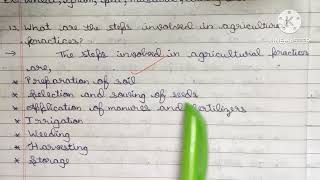 13. What are the steps involved in agriculture
practices?
→ The steps involved in agricultural practices
are,
* Preparation of soil
* Selection and sowing of seeds
* Application of manures and fertilizers
* Irrigation
* Weeding
* Harvesting
* Storage